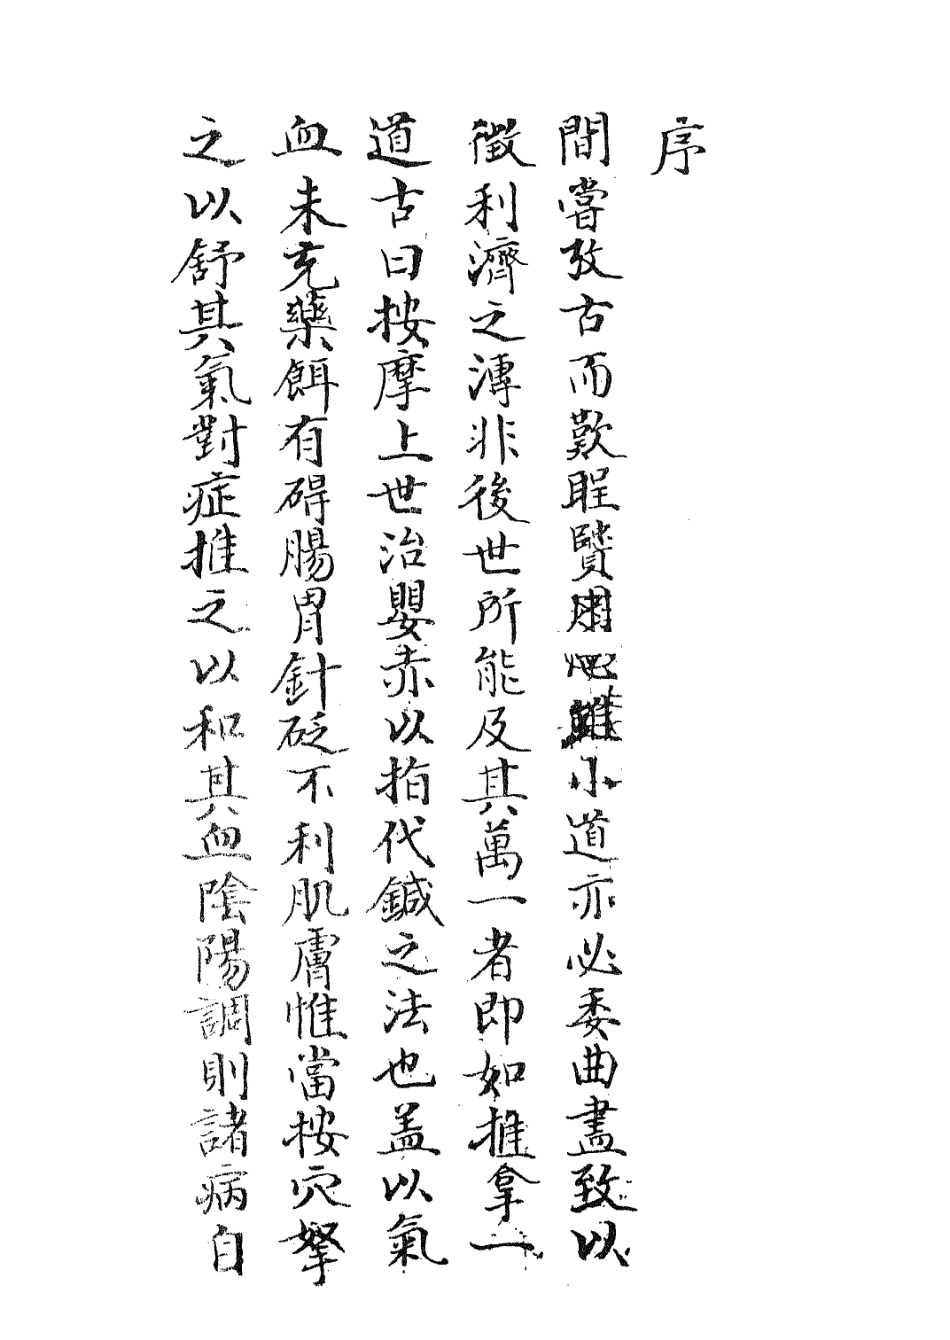 序
間嘗攷古而歎聖賢用心雖小道亦必委曲盡致以
徵利濟之溥非後世所能及其萬一者即如推拿一
道古曰按摩上世治嬰赤以指代鍼之法也盖以氣
血未充藥餌有碍腸胃針砭不利肌膚惟當按穴拏
之以舒其氣對症推之以和其血陰陽調則諸病自